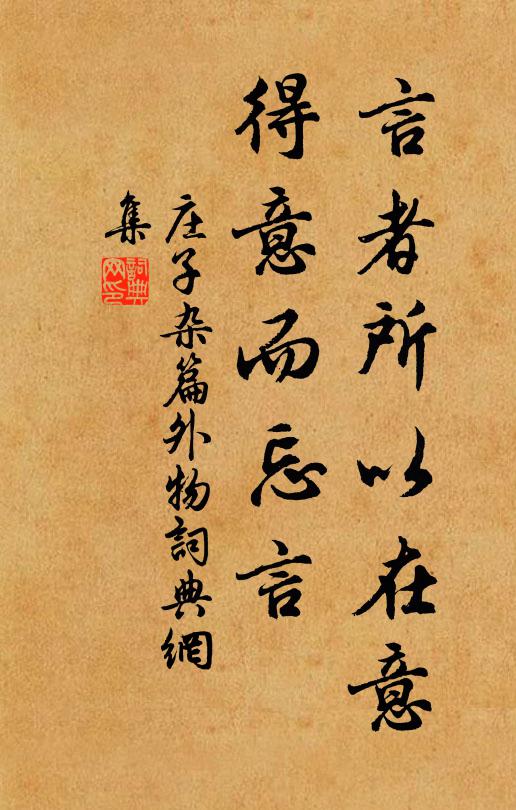 言者所以在意
得意而忘言
庄子杂篇外物詞典網
集
詞典网印